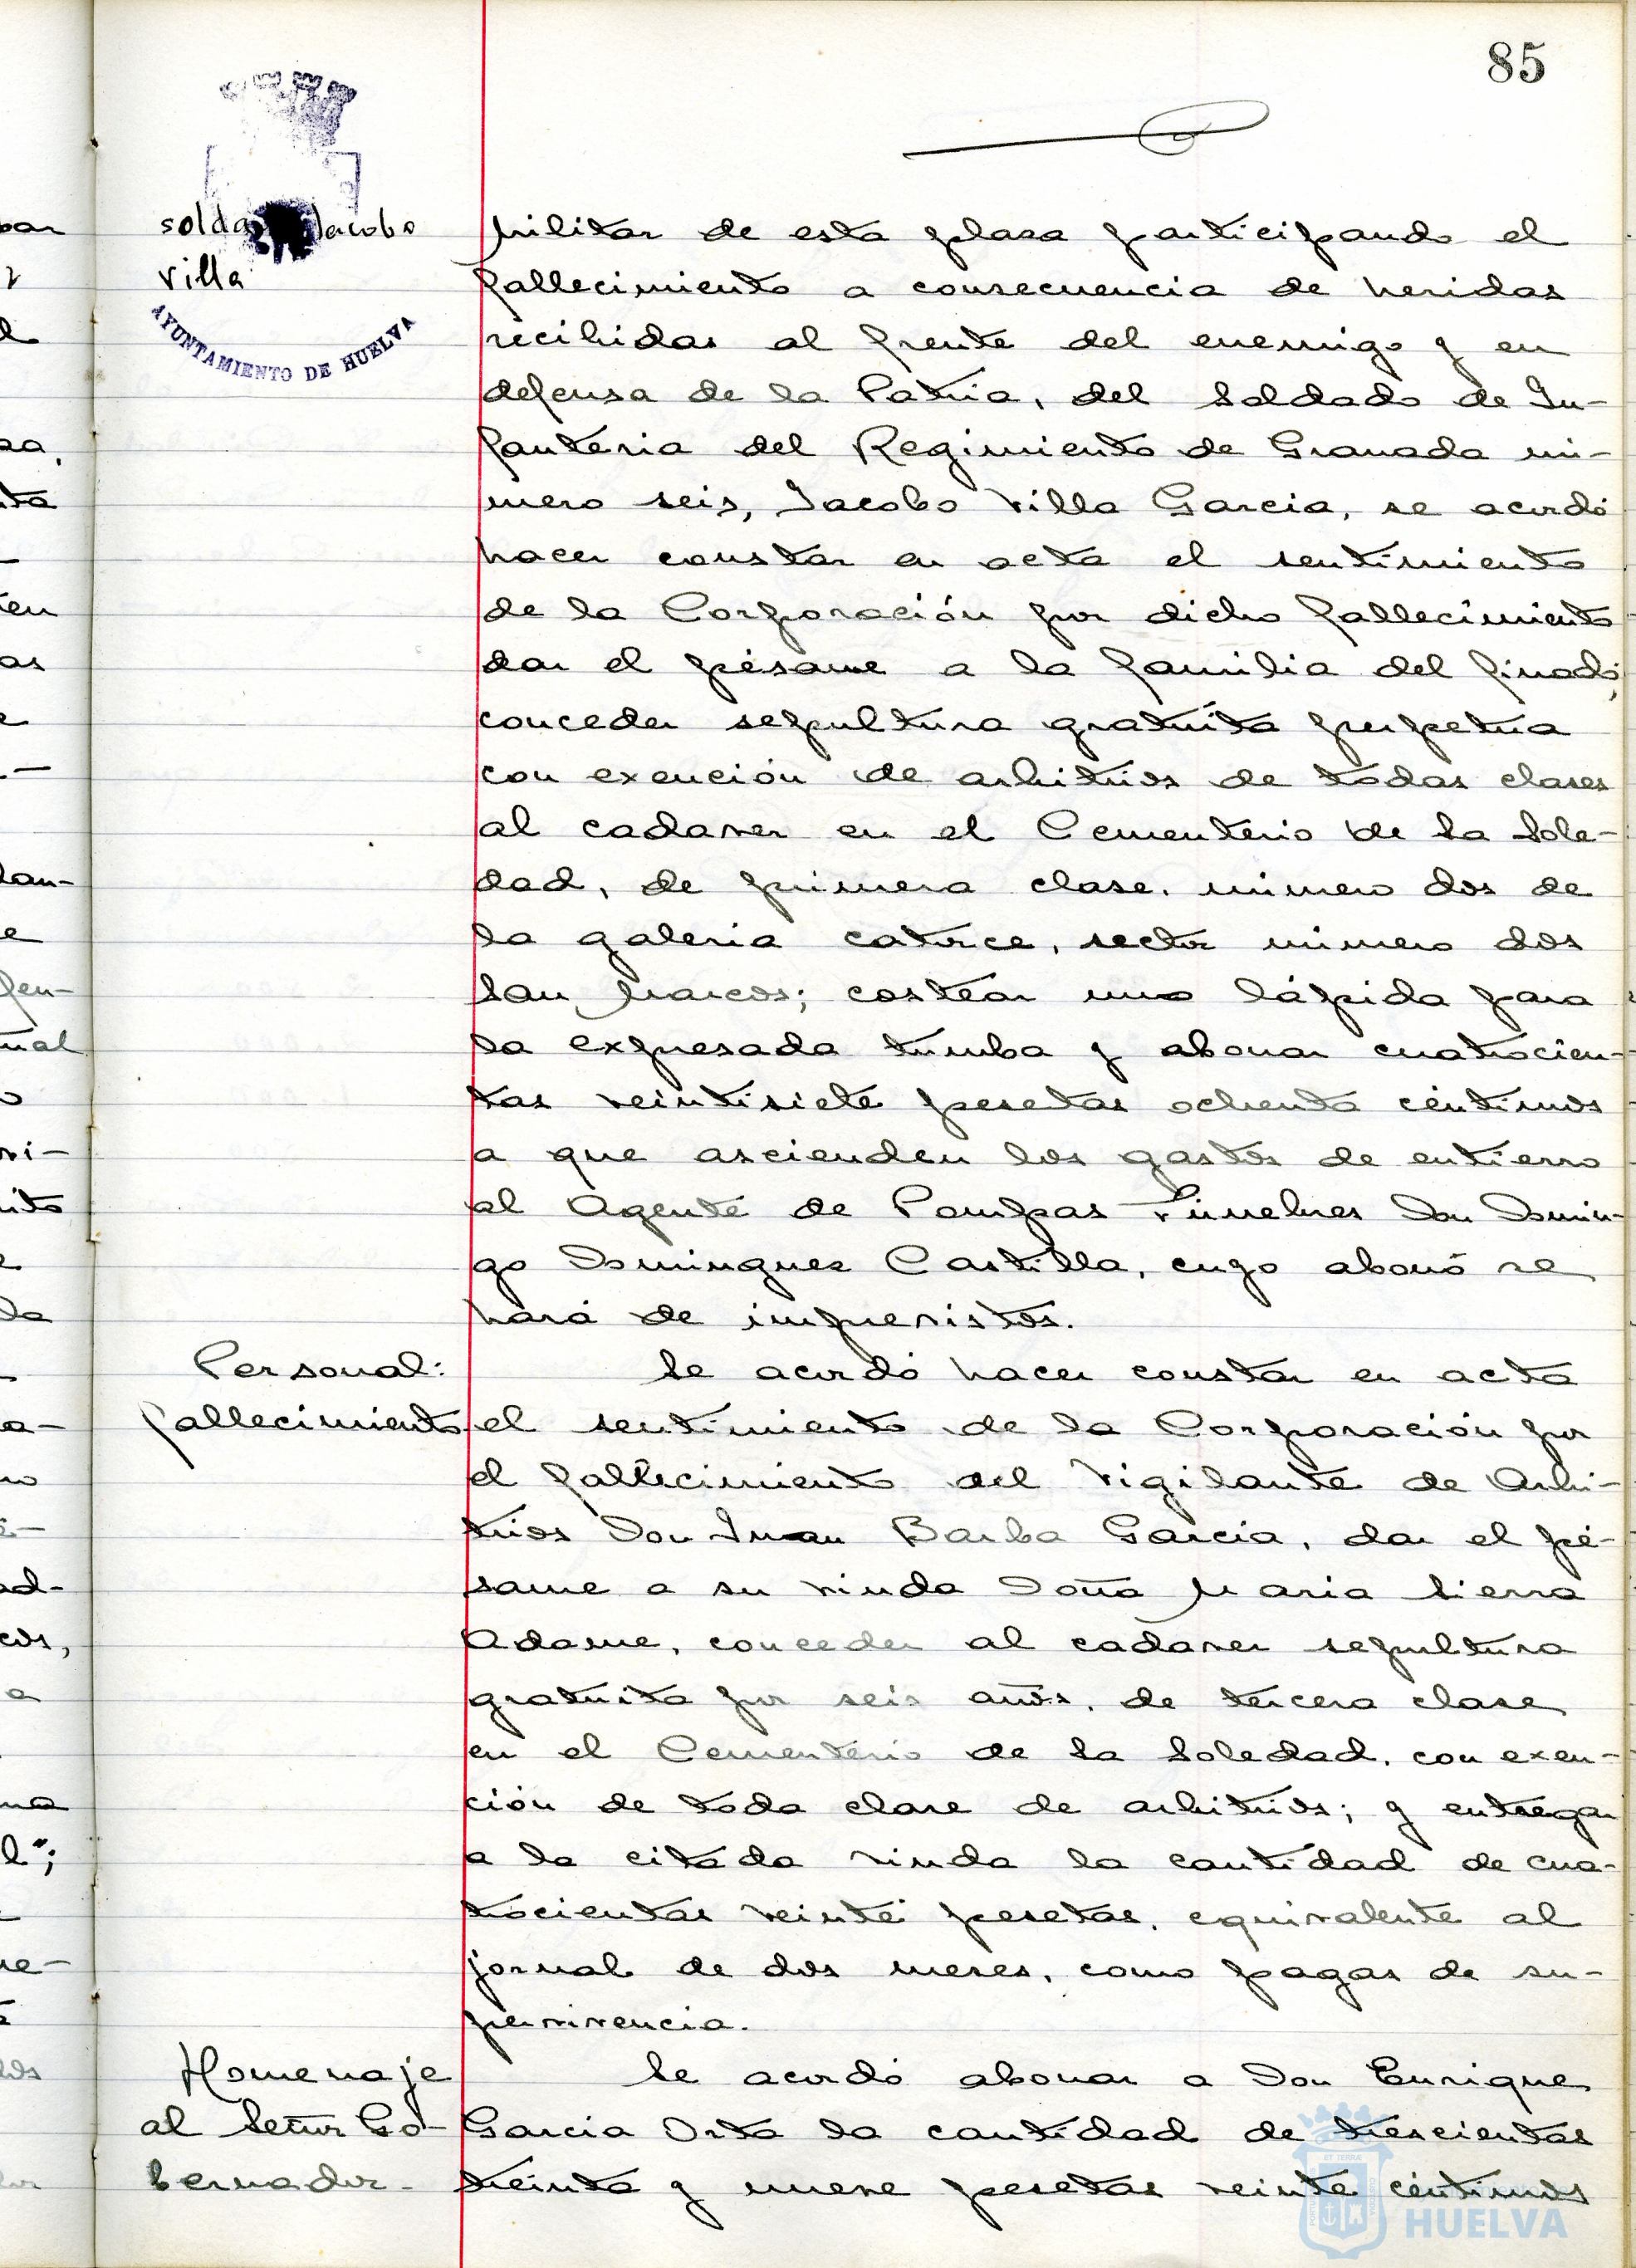 85
soldado Jacobo
villa
AYUNTAMIENTO DE HUELVA
Militar de esta plaza participando el
fallecimiento a consecuencia de heridas
recibidas al frente del enemigo y en
defensa de la Patria, del Soldado de In-
fanteria del Regimiento de Granada nú-
mero seis, Jacobo Villa Garcia, se acordó
hacer constar en acta el sentimiento
de la Corporación por dicho fallecimiento
dar el pésame a la familia del finado,
conceder sepultura gratuita perpetua
con exención de arbitrios de todas clases
al cadaver en el Cementerio de la Sole-
dad, de primera clase, número dos de
la galeria catorce, sector número dos
San Marcos; costear una lápida para
la expresada tumba y abonar cuatrocien-
tas veintisiete pesetas ochenta céntimos
a que ascienden los gastos de entierro
al Agente de Pompas Fúnebres Don Domin-
go Dominguez Castilla, cuyo abono se
hará de imprevistos.
Personal:
fallecimiento
Se acordó hacer constar en acta
el sentimiento de la Corporación por
el fallecimiento del Vigilante de Arbi-
trios Don Juan Barba Garcia, dar el pé-
same a su viuda Doña Maria Sierra
Adame, conceder al cadaver sepultura
gratuita por seis años, de tercera clase
en el Cementerio de la Soledad, con exen-
ción de toda clase de arbitrios; y entregar
a la citada viuda la cantidad de cua-
trocientas veinte pesetas, equivalente al
jornal de dos meses, como pagas de su-
pervivencia.
Homenaje
al Señor Go-
bernador.
Se acordó abonar a Don Enrique
Garcia Orta la cantidad de trescientas
treinta y nueve pesetas veinte céntimos
HUELVA